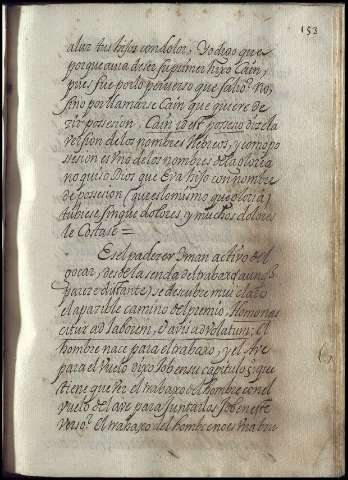 153
aluz tus hijos con dolor, Yo digo que
porque aura de ser su primer hixo Cain,
pues fue por lo peruerso que salio? no,
sino por llamarse Cain que quiere de
zir possesion, Cain id est possesio dize la
version de los nombres Hebreos, y como po
sesion es vno de los nombres de la gloria
no quiso Dios que Eva hijo con nombre
de possesion (que es lo mismo que gloria)
tubiese sin que dolores, y muchos dolores
le Costase =
Es el padezer Iman activo del
gozar, desde la senda del trabaxo aunq
parece distante) se descubre mui claro
el apazible camino del premio, Homo nas
citur ad laborem, et avis ad volatum; El
hombre nace para el trabaxo, y el Ave
para el Vuelo dixo Job en su capitulo 5, que
tiene que ver el trabaxo del hombre con el
vuelo del ave para juntarlos Job en este
verso? El trabaxo del hombre no es